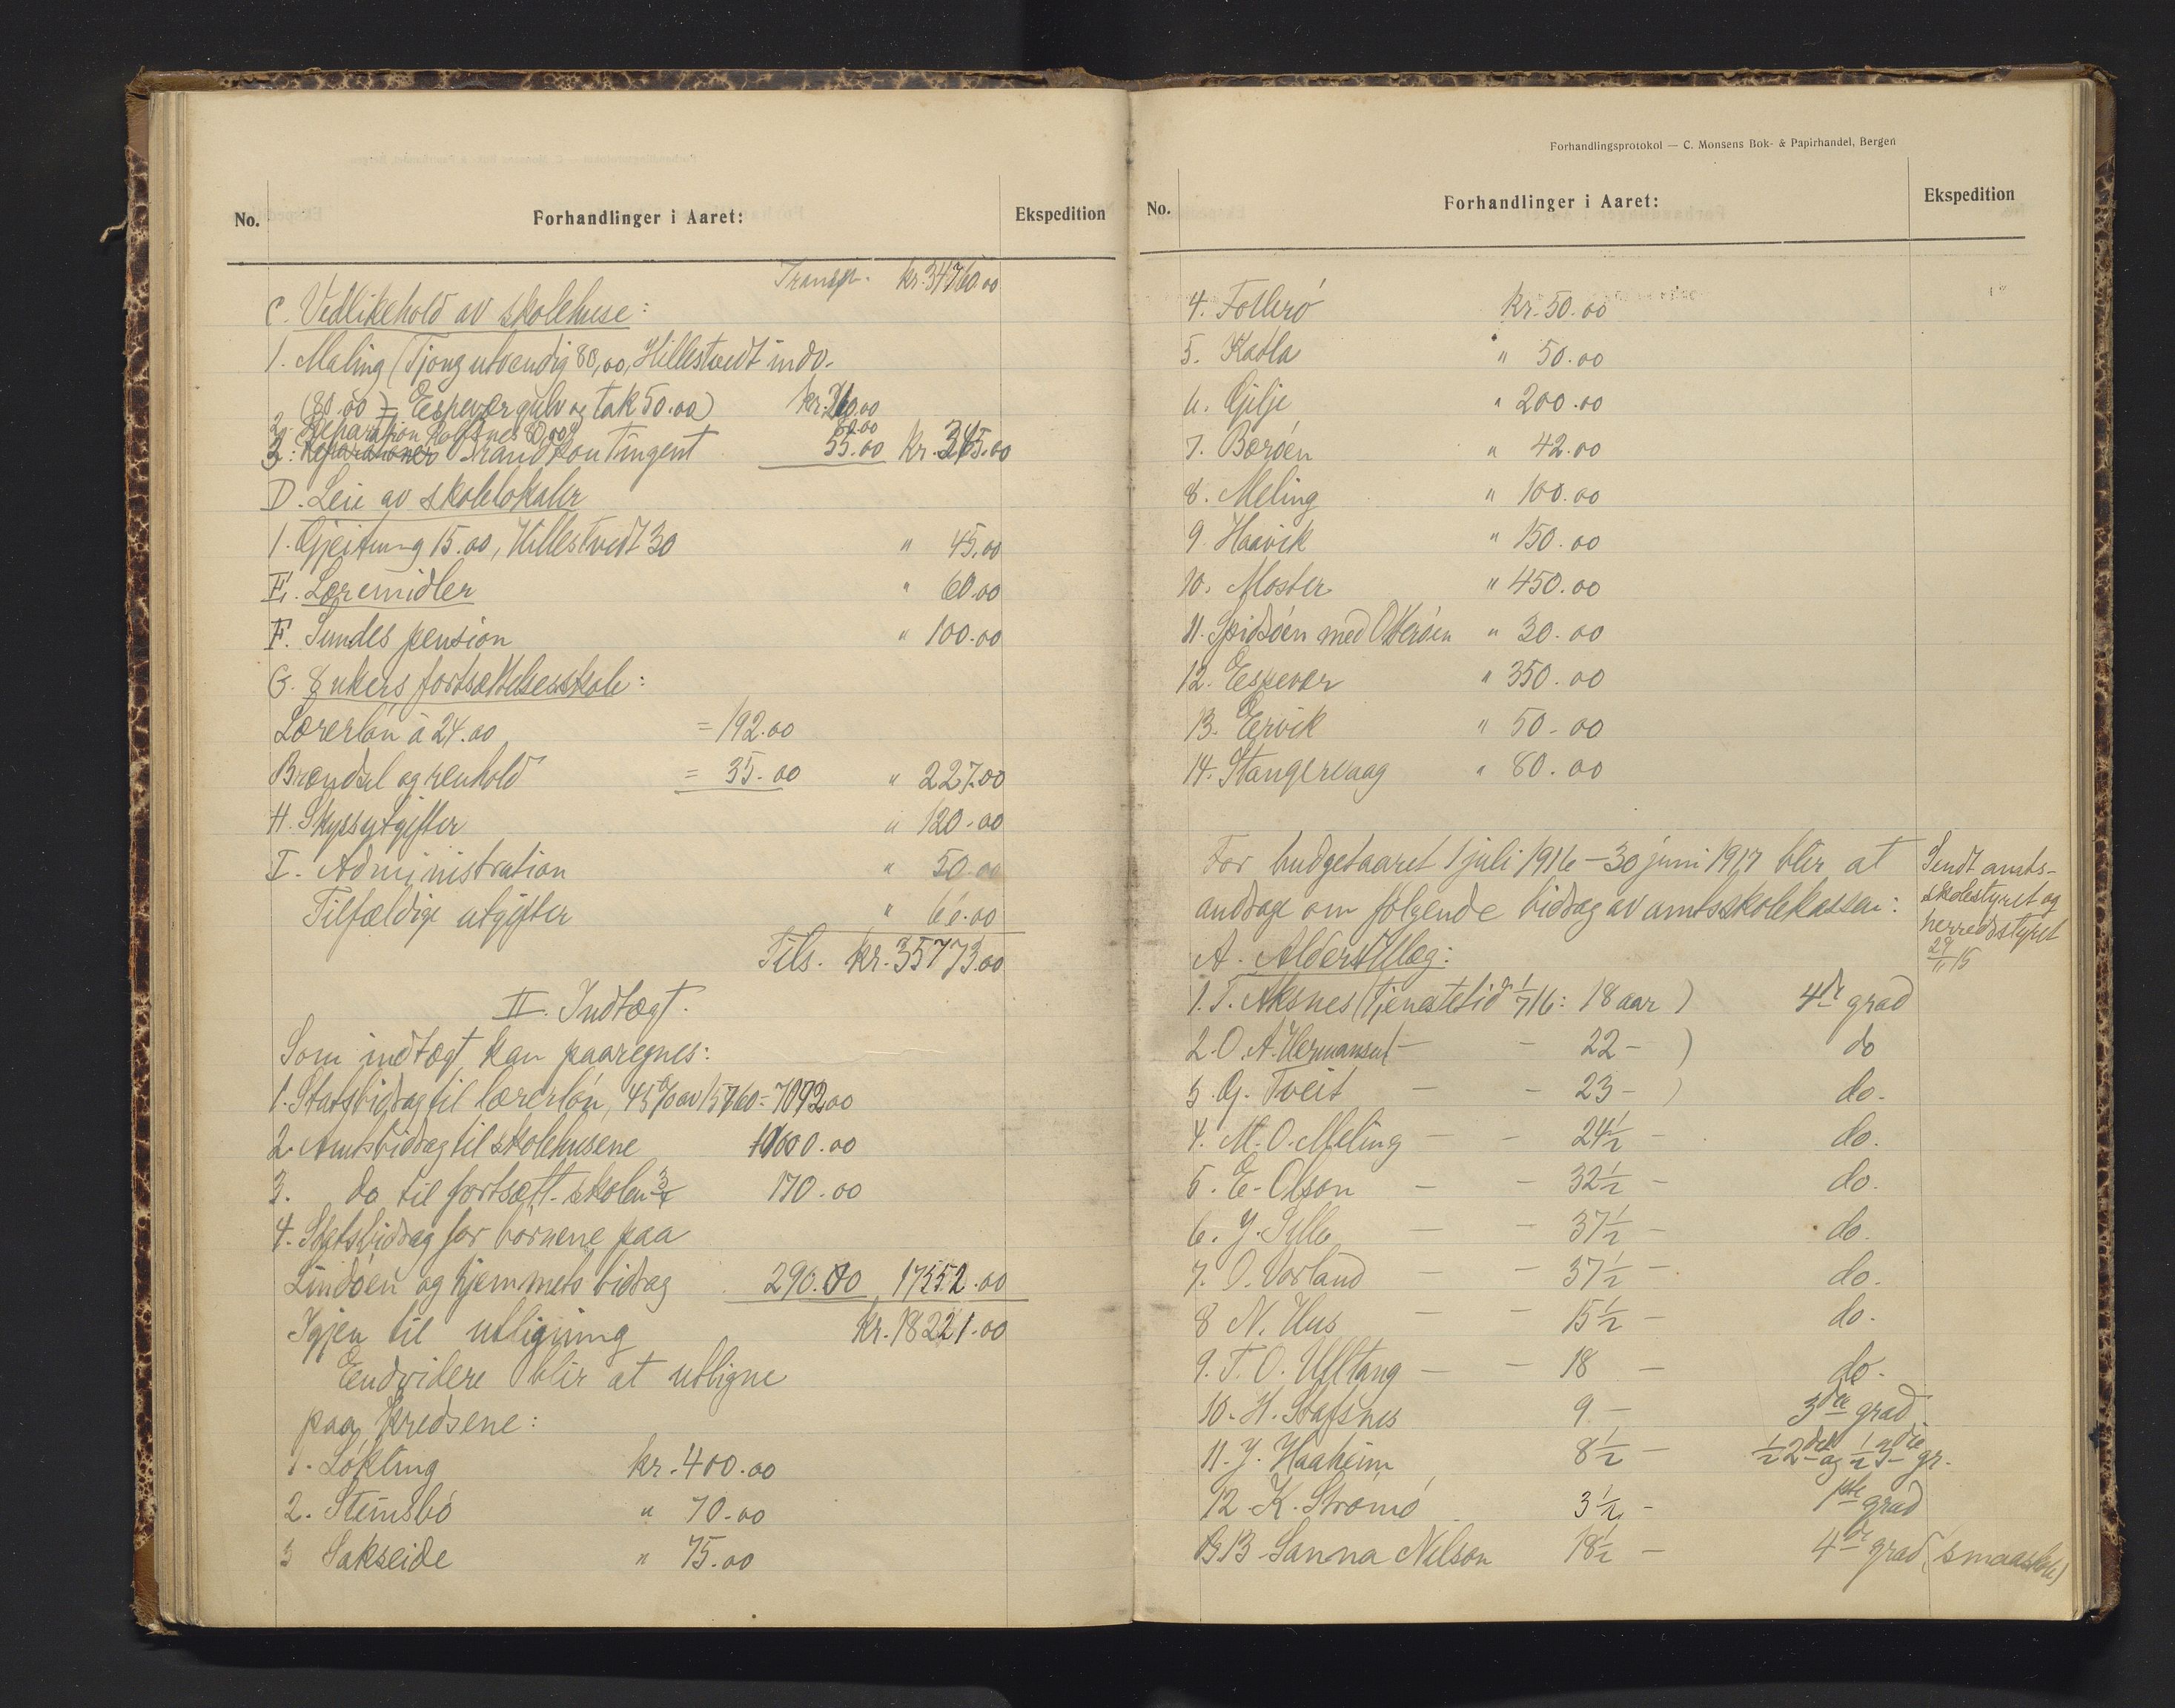 No.
Forhandlinger i Aaret:
Ekspedition
Transp. kr. 34760.00
C. Vedlikehold av skolehuse:
1. Maling (Tjong utvendig 80,00, Hillestvedt indv.
(80.00) = Espevær gulv og tak 50.00) kr. 210.00
2. Reparation Rolfsnes 80,00 80.00
3. Brandkontingent 55.00 kr. 345.00
D. Leie av skolelokaler
1. Gjeitung 15.00, Hillestvedt 30 " 45,00
E. Læremidler " 60.00
F. Sundes pension " 100.00
G. 8 ukers fortsættelsesskole:
Lærerløn à 24.00 = 192.00
Brændsel og renhold = 35.00 " 227.00
H. Skyssutgifter " 120.00
I. Administration " 50.00
Tilfældige utgifter " 66.00
Tils. kr. 35773.00
II. Indtægt.
Som indtægt kan paaregnes:
1. Statsbidrag til lærerløn, 45 % av 15760 = 7092.00
2. Amtsbidrag til skolehusene 10000.00
3. do til fortsætt. skolen 3/4 170.00
4. Statsbidrag for børnene paa
Lindøen og hjemmets bidrag 290.00 17552.00
Igjen til utligning kr. 18221.00
Eendvidere blir at utligne
paa kredsene:
1. Løkling kr. 400.00
2. Steinsbø " 70.00
3 Sakseide " 75.00
Forhandlingsprotokol — C. Monsens Bok- & Papirhandel, Bergen
No.
Forhandlinger i Aaret:
Ekspedition
4. Follerø kr. 50.00
5. Katla " 50.00
6. Gilje " 200.00
7. Børøen " 42.00
8. Meling " 100.00
9. Haavik " 150.00
10. Moster " 450.00
11. Spidsøen med Otterøen " 30.00
12. Espevær " 350.00
13. Eervik " 50.00
14. Stangervaag " 80.00
For budgetaaret 1 juli 1916 – 30 juni 1917 blir at
andrage om følgende bidrag av amtsskolekassen:
Sendt amts-
skolestyret og
herredsstyret
29/11 15
A. Alderstillæg:
1. T. Aksnes (Tjenestetid pr 1/7 16: 18 aar) 4de grad
2. O. A. Hermansen – – 22 – ) do
3. G. Tveit – – 23 – ) do.
4. M. O. Meling – – 24½ – do.
5. E. Olson – – 32½ – do.
6. J. Sylte – – 37½ – do.
7. O. Vorland – – 37½ – do.
8 N. Hus – – 15½ – do.
9. T. O. Ulltang – – 18 – do.
10. H. Stafsnes 9 – 3die grad
11. J. Haaheim 8½ – ½ 2den og ½ 3die gr.
12. K. Strømø 3½ – 1ste grad
B 13 Sanna Nilson 18½ – 4de grad (smaaskole)